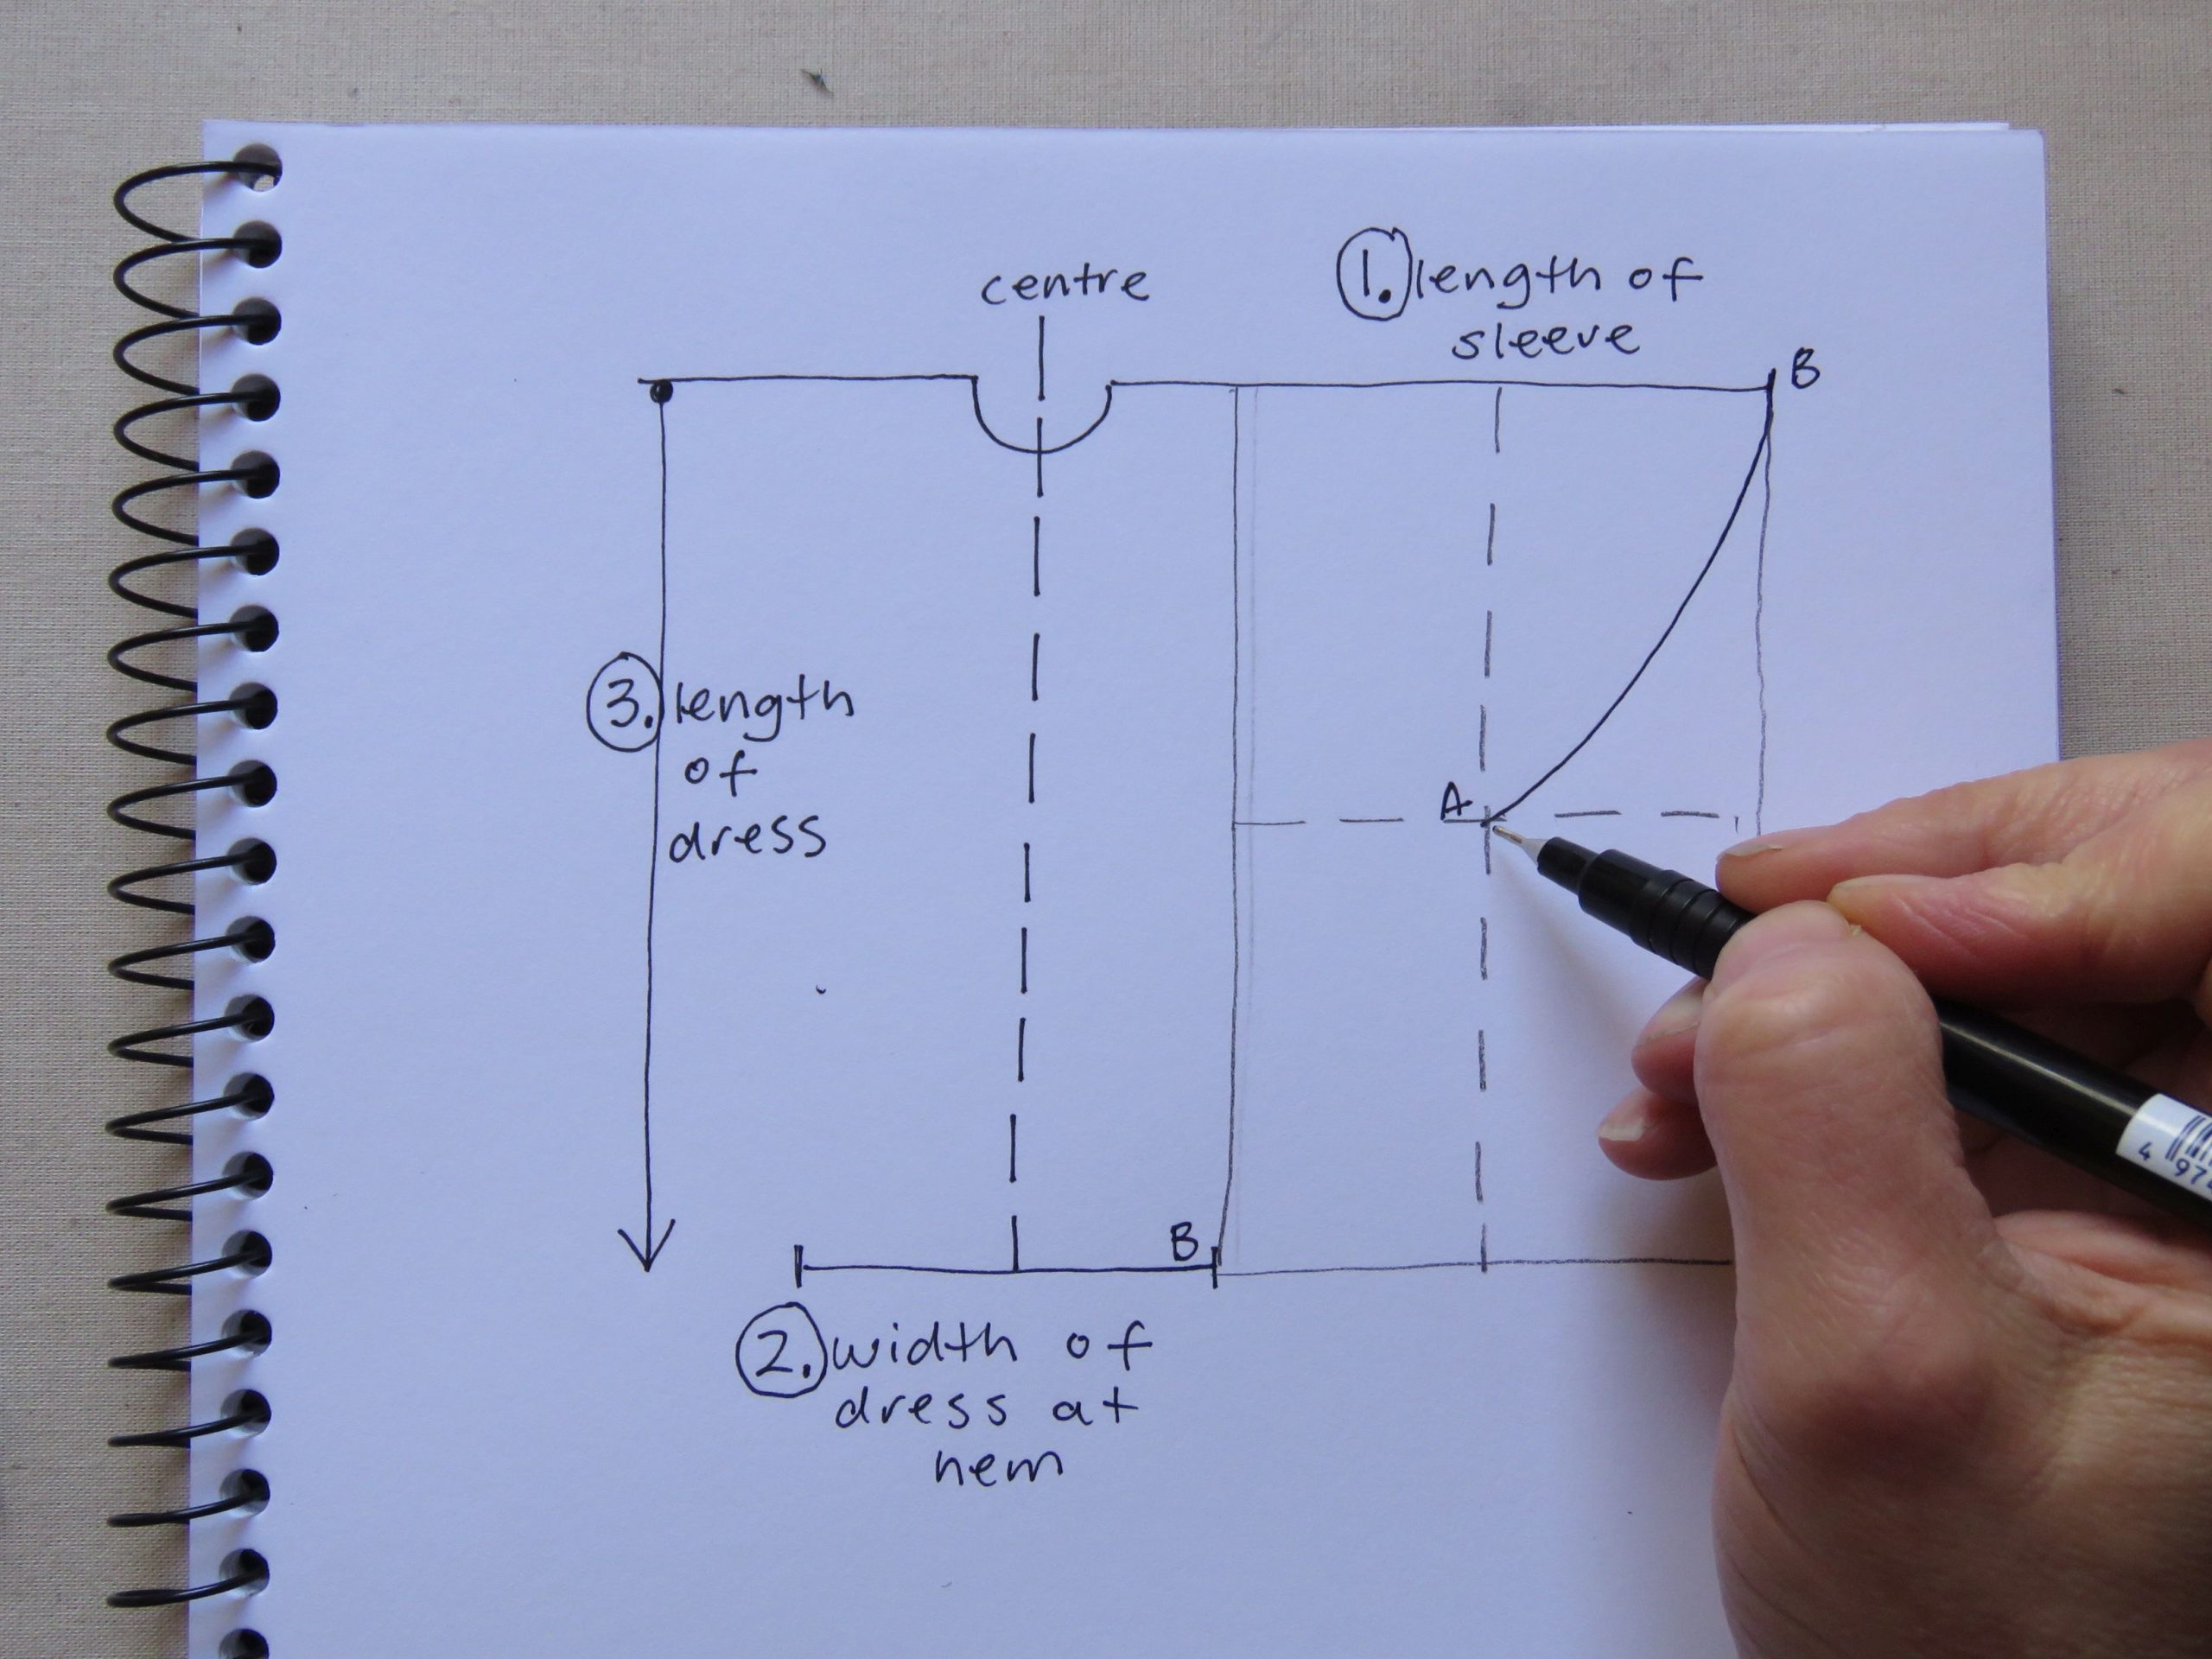 centre
1. length of
sleeve
B
3. length
of
dress
A
B
2. width of
dress at
hem
4 97